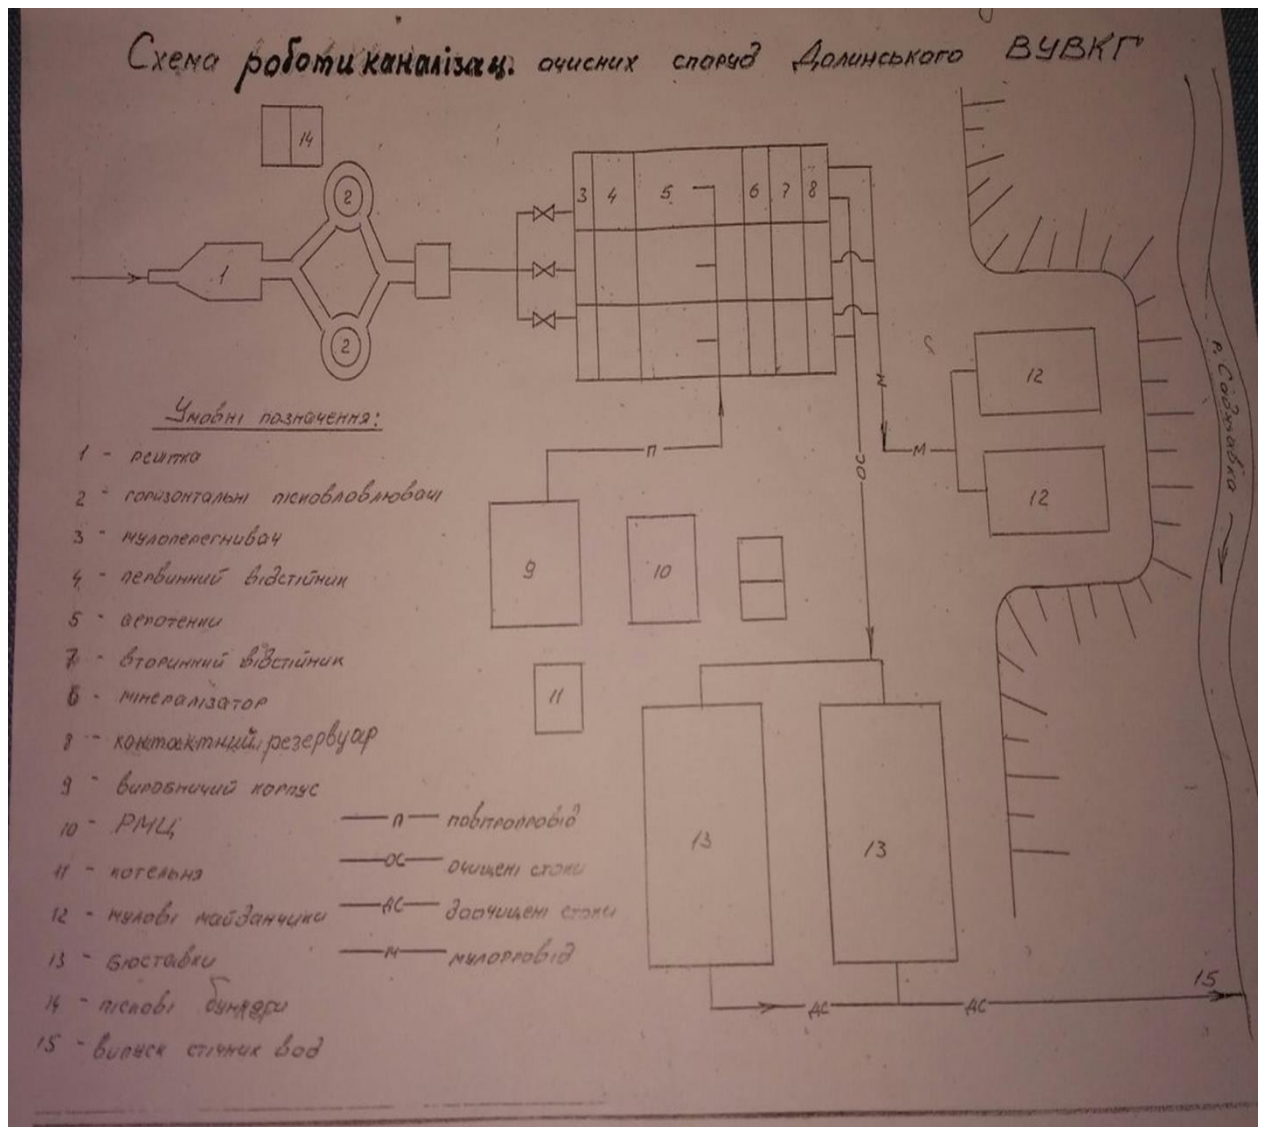 Схема роботи каналізац. очисних споруд Долинського ВУВКГ
14
2
1
2
3 4 5 6 7 8
П
М
ОС
М
12
12
р. Саджавка
9
10
11
13
13
ДС
ДС
15
Умовні позначення:
1 - решітка
2 - горизонтальні пісковловлювачі
3 - мулоперегнивач
4 - первинний відстійник
5 - аеротенки
7 - вторинний відстійник
6 - мінералізатор
8 - контактний резервуар
9 - виробничий корпус
10 - РМЦ
11 - котельня
12 - мулові майданчики
13 - біоставки
14 - піскові бункери
15 - випуск стічних вод
П повітропровід
ОС очищені стоки
ДС доочищені стоки
М мулопровід